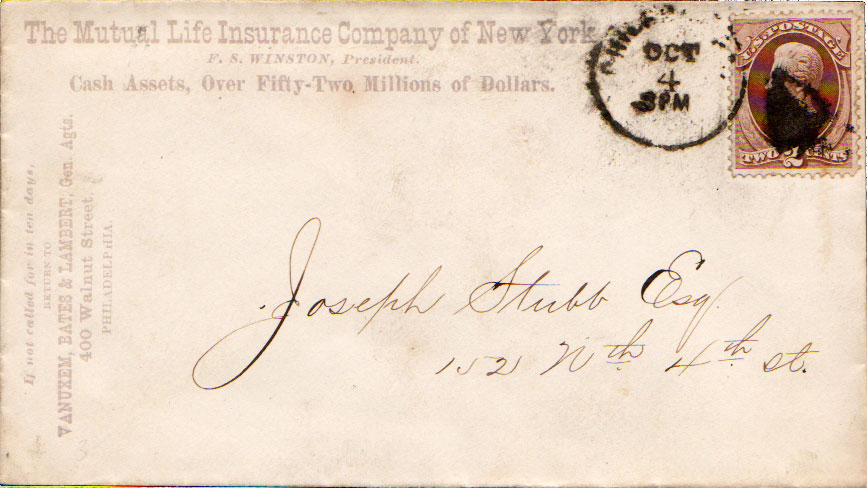 The Mutual Life Insurance Company of New York
F. S. WINSTON, President.
Cash Assets, Over Fifty-Two Millions of Dollars.
If not called for in ten days,
RETURN TO
VANUXEM, BATES & LAMBERT, Gen. Agts.
400 Walnut Street,
PHILADELPHIA.
OCT
4
3PM
U.S. POSTAGE
TWO 2 CENTS
Joseph Stubb Esq.
152 Nth 4th st.